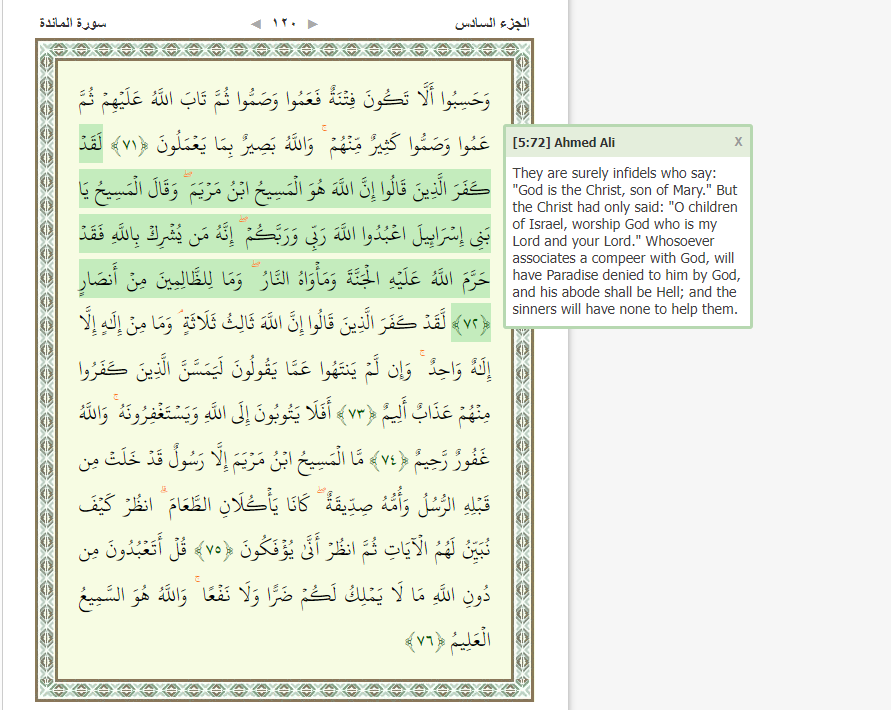 الجزء السادس
١٢٠
سورة المائدة
وَحَسِبُوا أَلَّا تَكُونَ فِتْنَةٌ فَعَمُوا وَصَمُّوا ثُمَّ تَابَ اللَّهُ عَلَيْهِمْ ثُمَّ
عَمُوا وَصَمُّوا كَثِيرٌ مِّنْهُمْ ۚ وَاللَّهُ بَصِيرٌ بِمَا يَعْمَلُونَ ﴿٧١﴾ لَقَدْ
كَفَرَ الَّذِينَ قَالُوا إِنَّ اللَّهَ هُوَ الْمَسِيحُ ابْنُ مَرْيَمَ ۖ وَقَالَ الْمَسِيحُ يَا
بَنِي إِسْرَائِيلَ اعْبُدُوا اللَّهَ رَبِّي وَرَبَّكُمْ ۖ إِنَّهُ مَن يُشْرِكْ بِاللَّهِ فَقَدْ
حَرَّمَ اللَّهُ عَلَيْهِ الْجَنَّةَ وَمَأْوَاهُ النَّارُ ۖ وَمَا لِلظَّالِمِينَ مِنْ أَنصَارٍ
﴿٧٢﴾ لَّقَدْ كَفَرَ الَّذِينَ قَالُوا إِنَّ اللَّهَ ثَالِثُ ثَلَاثَةٍ ۘ وَمَا مِنْ إِلَٰهٍ إِلَّا
إِلَٰهٌ وَاحِدٌ ۚ وَإِن لَّمْ يَنتَهُوا عَمَّا يَقُولُونَ لَيَمَسَّنَّ الَّذِينَ كَفَرُوا
مِنْهُمْ عَذَابٌ أَلِيمٌ ﴿٧٣﴾ أَفَلَا يَتُوبُونَ إِلَى اللَّهِ وَيَسْتَغْفِرُونَهُ ۚ وَاللَّهُ
غَفُورٌ رَّحِيمٌ ﴿٧٤﴾ مَّا الْمَسِيحُ ابْنُ مَرْيَمَ إِلَّا رَسُولٌ قَدْ خَلَتْ مِن
قَبْلِهِ الرُّسُلُ وَأُمُّهُ صِدِّيقَةٌ ۖ كَانَا يَأْكُلَانِ الطَّعَامَ ۗ انظُرْ كَيْفَ
نُبَيِّنُ لَهُمُ الْآيَاتِ ثُمَّ انظُرْ أَنَّىٰ يُؤْفَكُونَ ﴿٧٥﴾ قُلْ أَتَعْبُدُونَ مِن
دُونِ اللَّهِ مَا لَا يَمْلِكُ لَكُمْ ضَرًّا وَلَا نَفْعًا ۚ وَاللَّهُ هُوَ السَّمِيعُ
الْعَلِيمُ ﴿٧٦﴾
[5:72] Ahmed Ali
X
They are surely infidels who say:
"God is the Christ, son of Mary." But
the Christ had only said: "O children
of Israel, worship God who is my
Lord and your Lord." Whosoever
associates a compeer with God, will
have Paradise denied to him by God,
and his abode shall be Hell; and the
sinners will have none to help them.